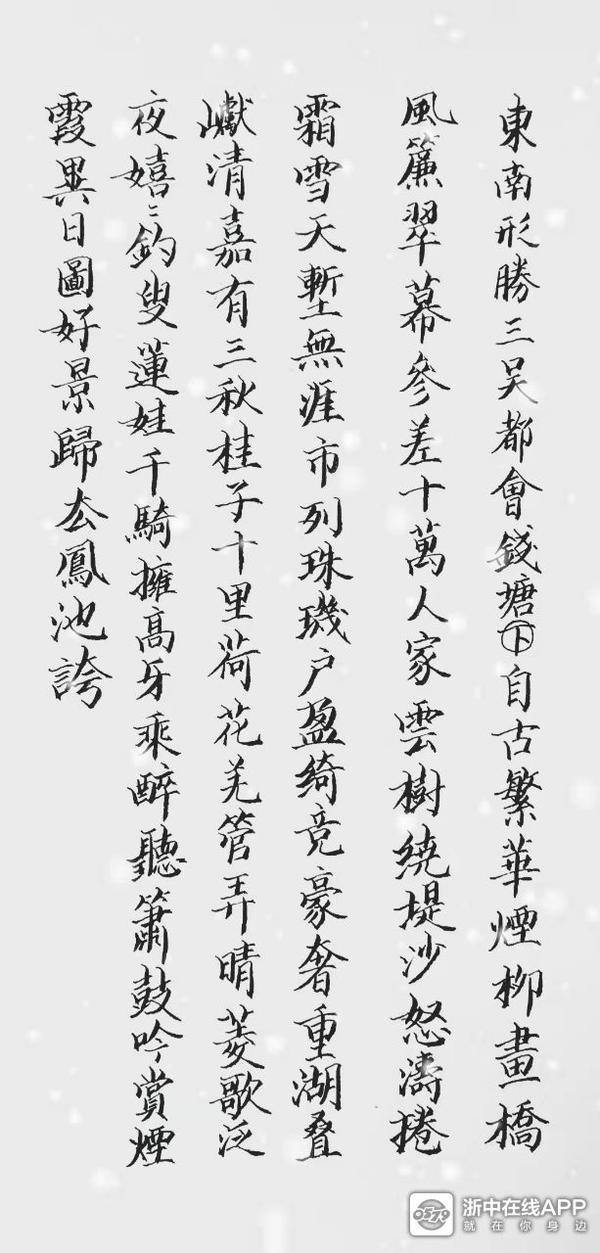 東南形勝三吴都會錢塘下自古繁華煙柳畫橋
風簾翠幕參差十萬人家雲樹繞堤沙怒濤捲
霜雪天塹無涯市列珠璣户盈綺竞豪奢重湖叠
巘清嘉有三秋桂子十里荷花羌管弄晴菱歌泛
夜嬉〻釣叟蓮娃千騎擁高牙乘醉聽簫鼓吟賞煙
霞異日圖好景歸去鳳池誇
0579 浙中在线APP
就在你身边